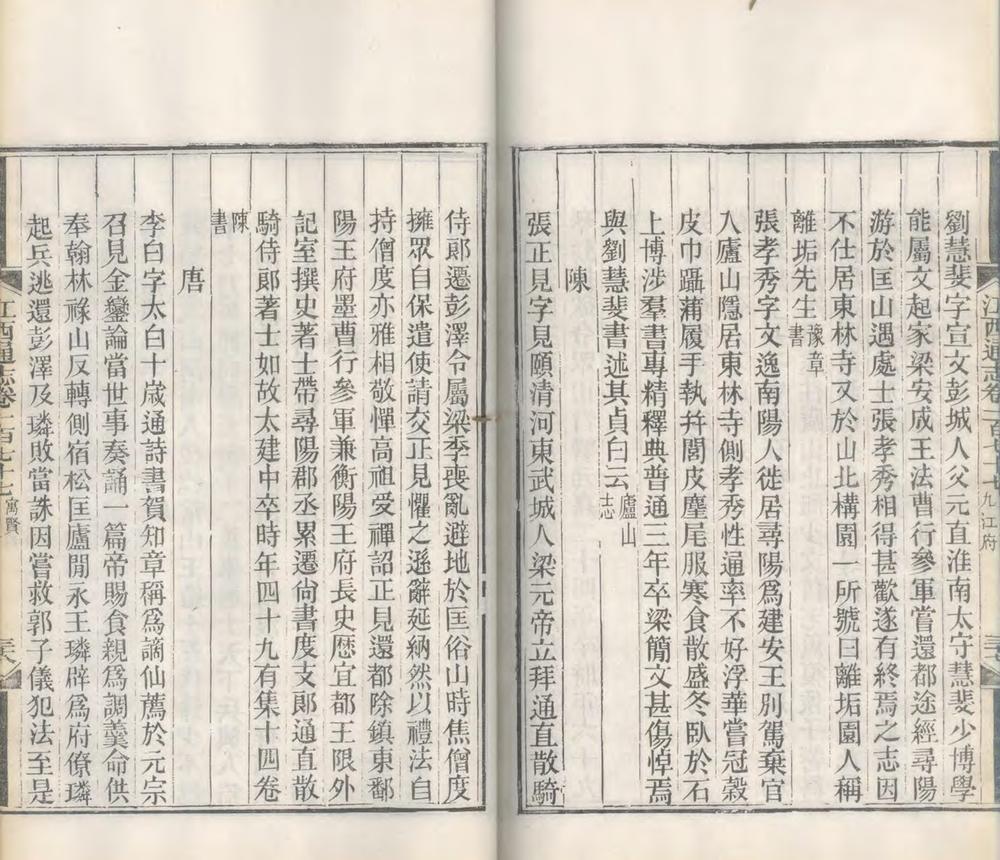 江西通志卷一百七十七 九江府
劉慧斐字宣文彭城人父元直淮南太守慧斐少博學
能屬文起家梁安成王法曹行參軍嘗還都途經尋陽
游於匡山遇處士張孝秀相得甚歡遂有終焉之志因
不仕居東林寺又於山北構園一所號曰離垢園人稱
離垢先生豫章書
張孝秀字文逸南陽人徙居尋陽為建安王別駕棄官
入廬山隱居東林寺側孝秀性通率不好浮華嘗冠穀
皮巾躡蒲履手執幷閭皮麈尾服寒食散盛冬臥於石
上博涉羣書專精釋典普通三年卒梁簡文甚傷悼焉
與劉慧斐書述其貞白云廬山志
陳
張正見字見頤清河東武城人梁元帝立拜通直散騎
侍郞遷彭澤令屬梁季喪亂避地於匡俗山時焦僧度
擁眾自保遣使請交正見懼之遜辭延納然以禮法自
持僧度亦雅相敬憚高祖受禪詔正見還都除鎮東鄱
陽王府墨曹行參軍兼衡陽王府長史歷宜都王限外
記室撰史著士帶尋陽郡丞累遷尙書度支郞通直散
騎侍郞著士如故太建中卒時年四十九有集十四卷
陳書
唐
李白字太白十歲通詩書賀知章稱為謫仙薦於元宗
召見金鑾論當世事奏誦一篇帝賜食親為調羹命供
奉翰林祿山反轉側宿松匡廬閒永王璘辟為府僚璘
起兵逃還彭澤及璘敗當誅因嘗救郭子儀犯法至是
江西通志卷一百七十七 寓賢